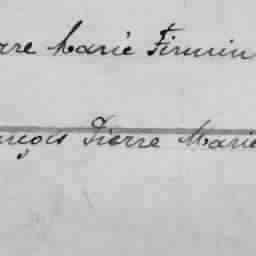 rre Marie Firmin
nçois Pierre Marie